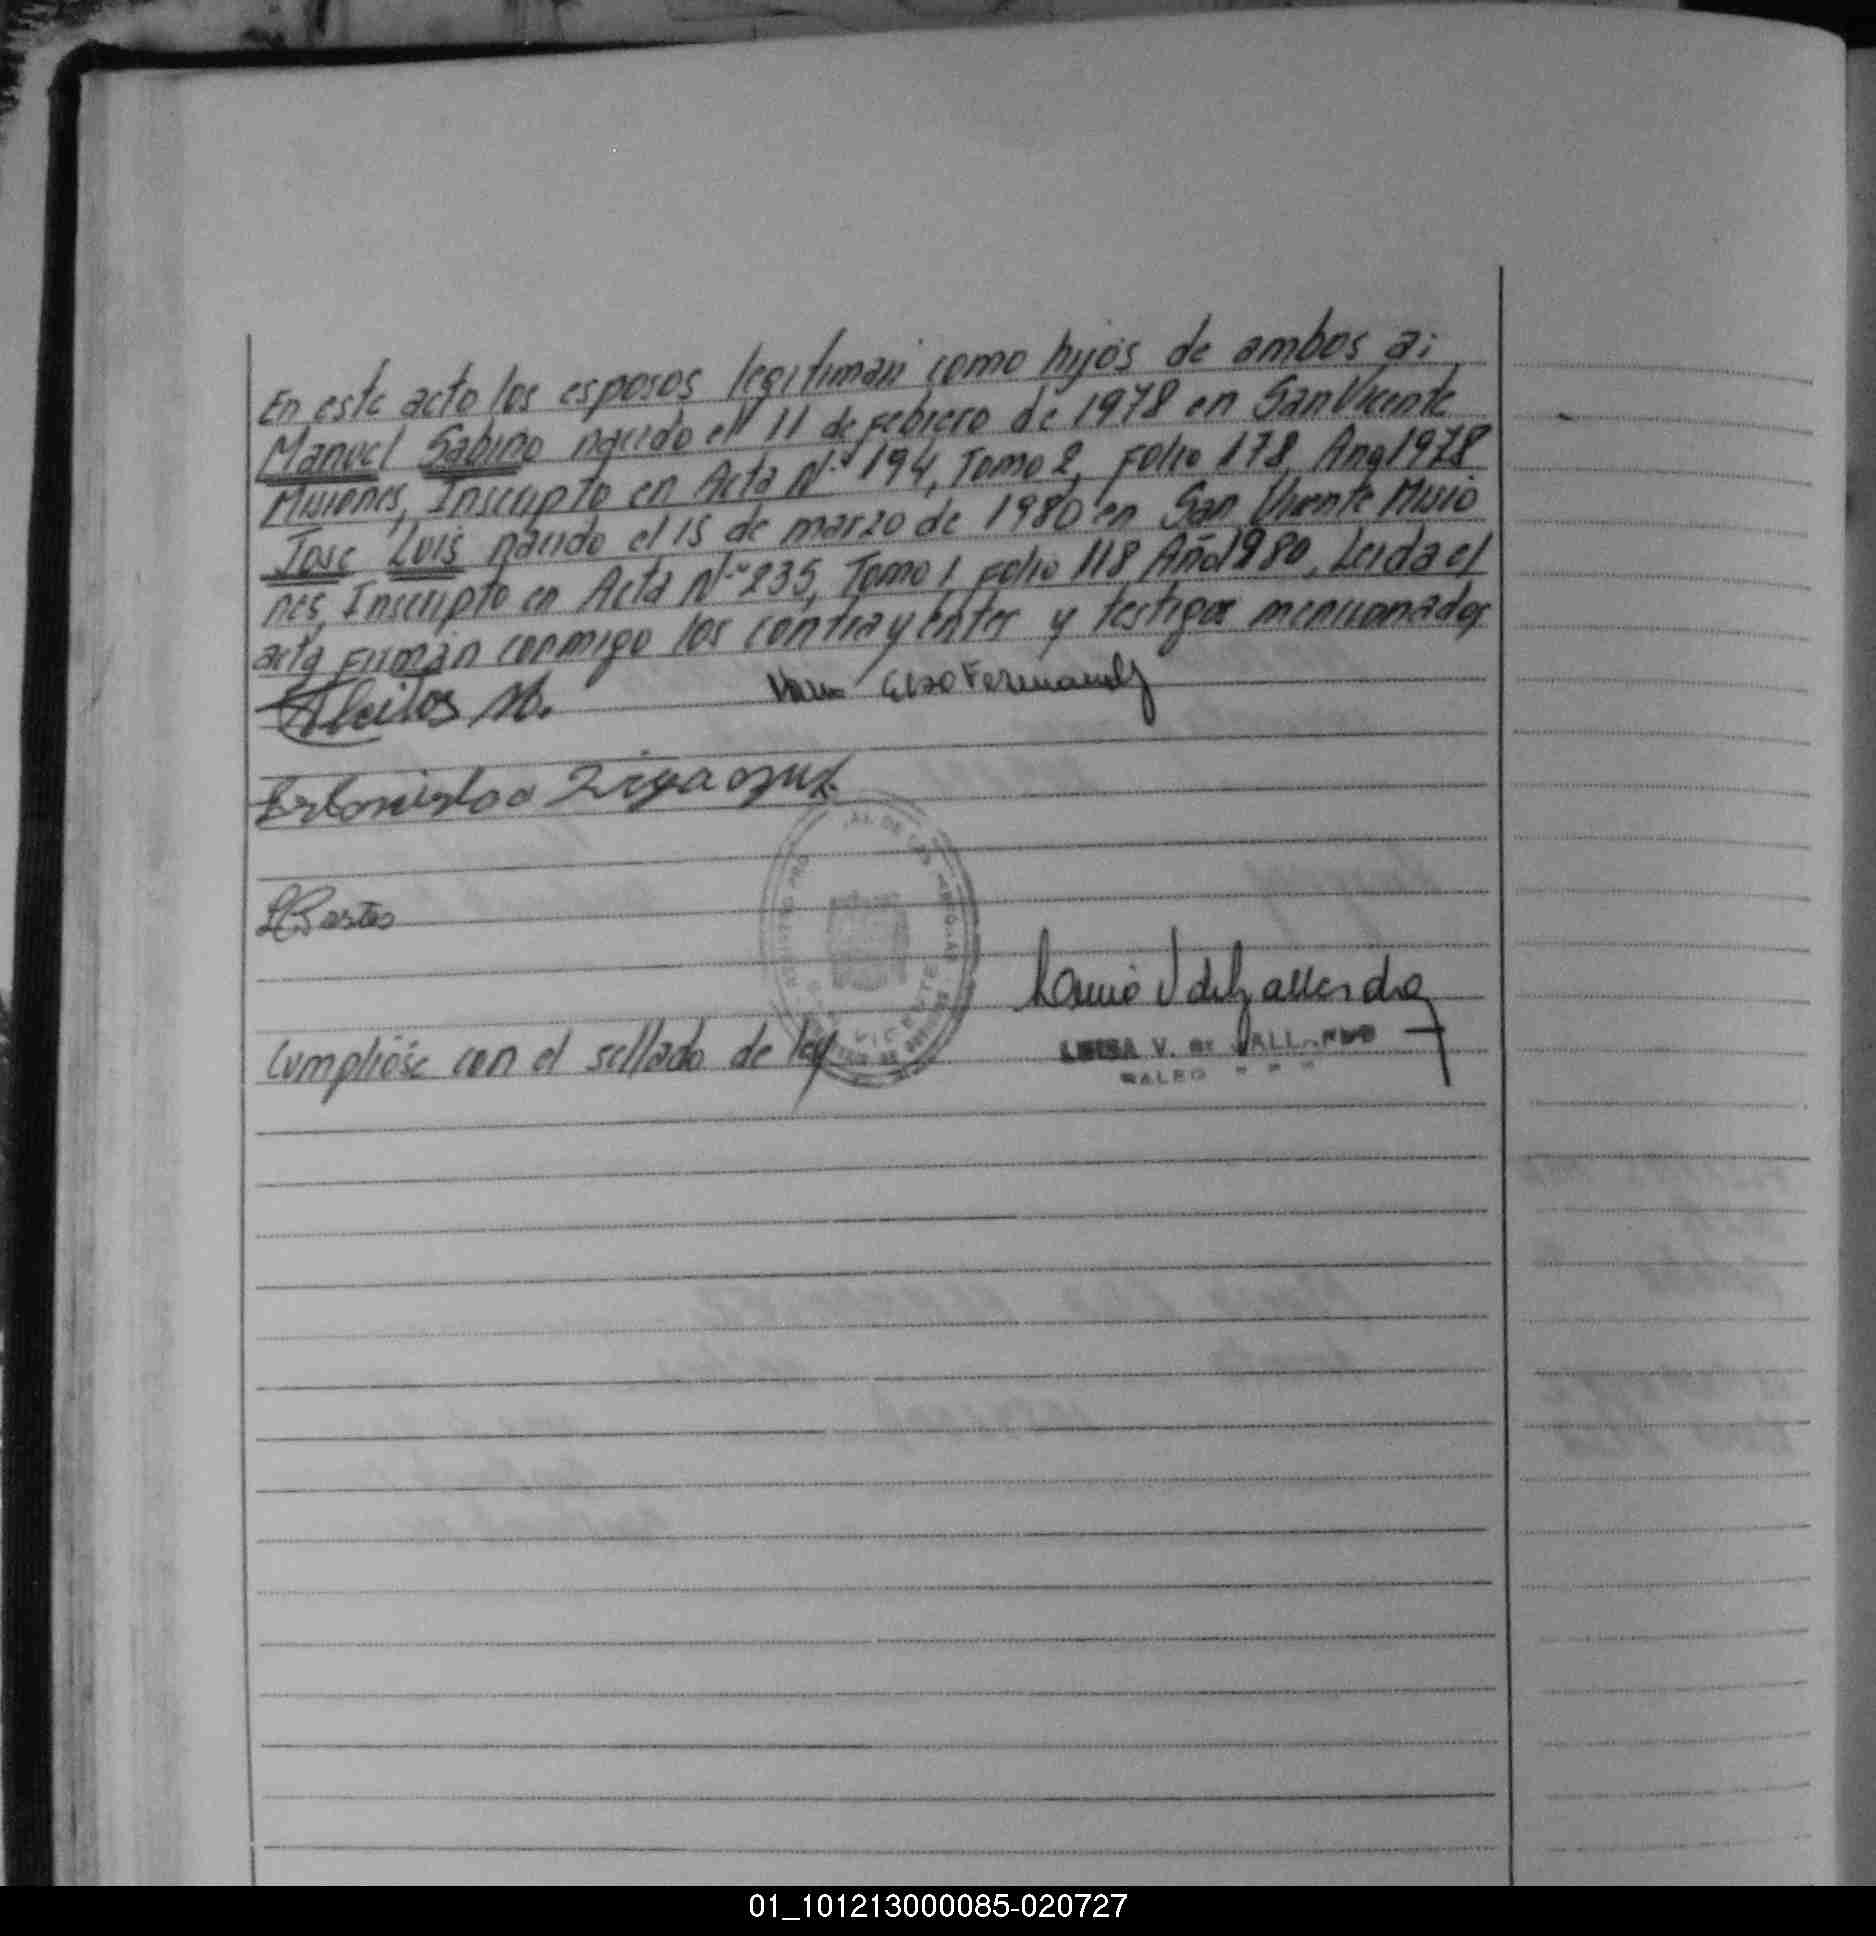 En este acto los esposos legitiman como hijos de ambos a:
Manuel Sabino nacido el 11 de Febrero de 1978 en San Vicente
Misiones, Inscripto en Acta N.º 194, Tomo 2, Folio 178 Año 1978
Jose Luis nacido el 15 de marzo de 1980 en San Vicente Misio
nes, Inscripto en Acta N.º 235, Tomo 1, Folio 118 Año 1980, Leida el
acta Firman conmigo los contrayentes y testigos mencionados
Elso Fernandez
Cumplióse con el sellado de ley
VICENTE
LUISA V. de GALLARDO
01_101213000085-020727